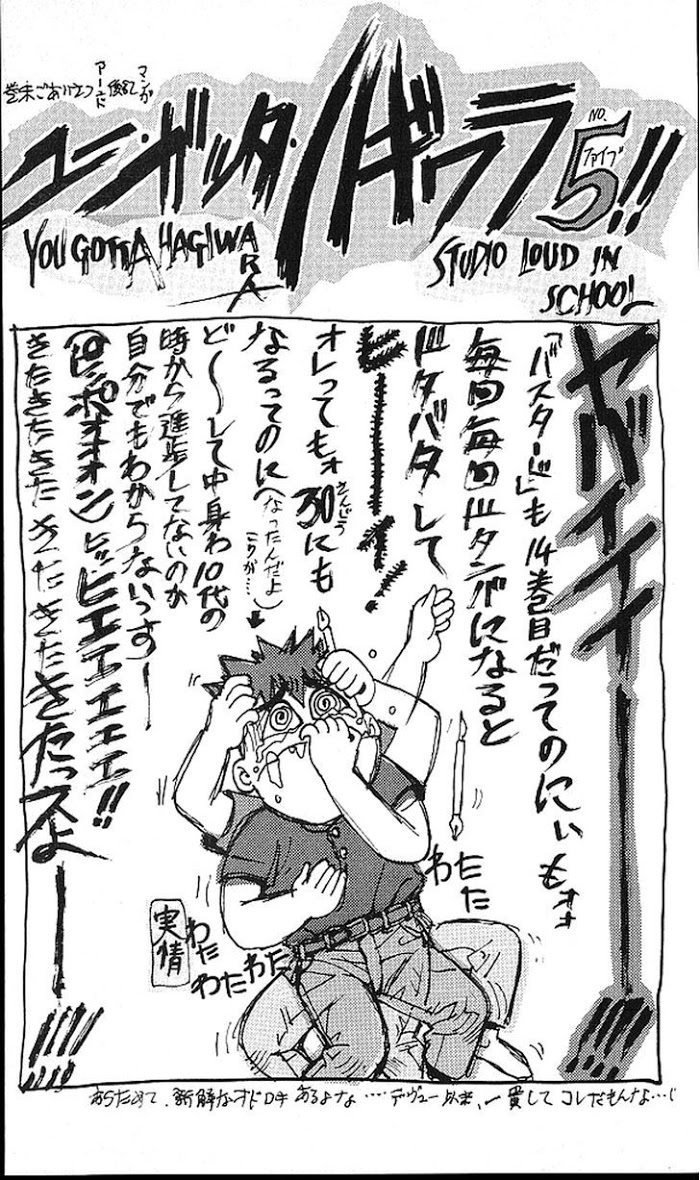 巻末ごあいさつ
マンガ
アーンド
後記
ユー・ガッタ・ハギワラ
NO.
5!!
ファイブ
YOU GOTTA HAGIWARA
STUDIO LOUD IN
SCHOOL
ヤバイイイーーー!!!!
「バスタード」も14巻目だってのにぃもォォ
毎回毎回ドタンバになると
ドタバタして
ヒーーイ!
オレってもォ30にも
さんじう
なるってのに(なったんだよ
こりが…)
ど〜〜して中身わ10代の
時から進歩してないのか
自分でもわからないっすー
(ピンポオオオン)ヒッヒエエエエエエ!!
きたきたきたきたきたきたきたきたっスよーー!!!!
わたた
実情
わた
わたわた
あらためて、新鮮なオドロキあるよナ……デヴュー以来、一貫してコレだもんナ…